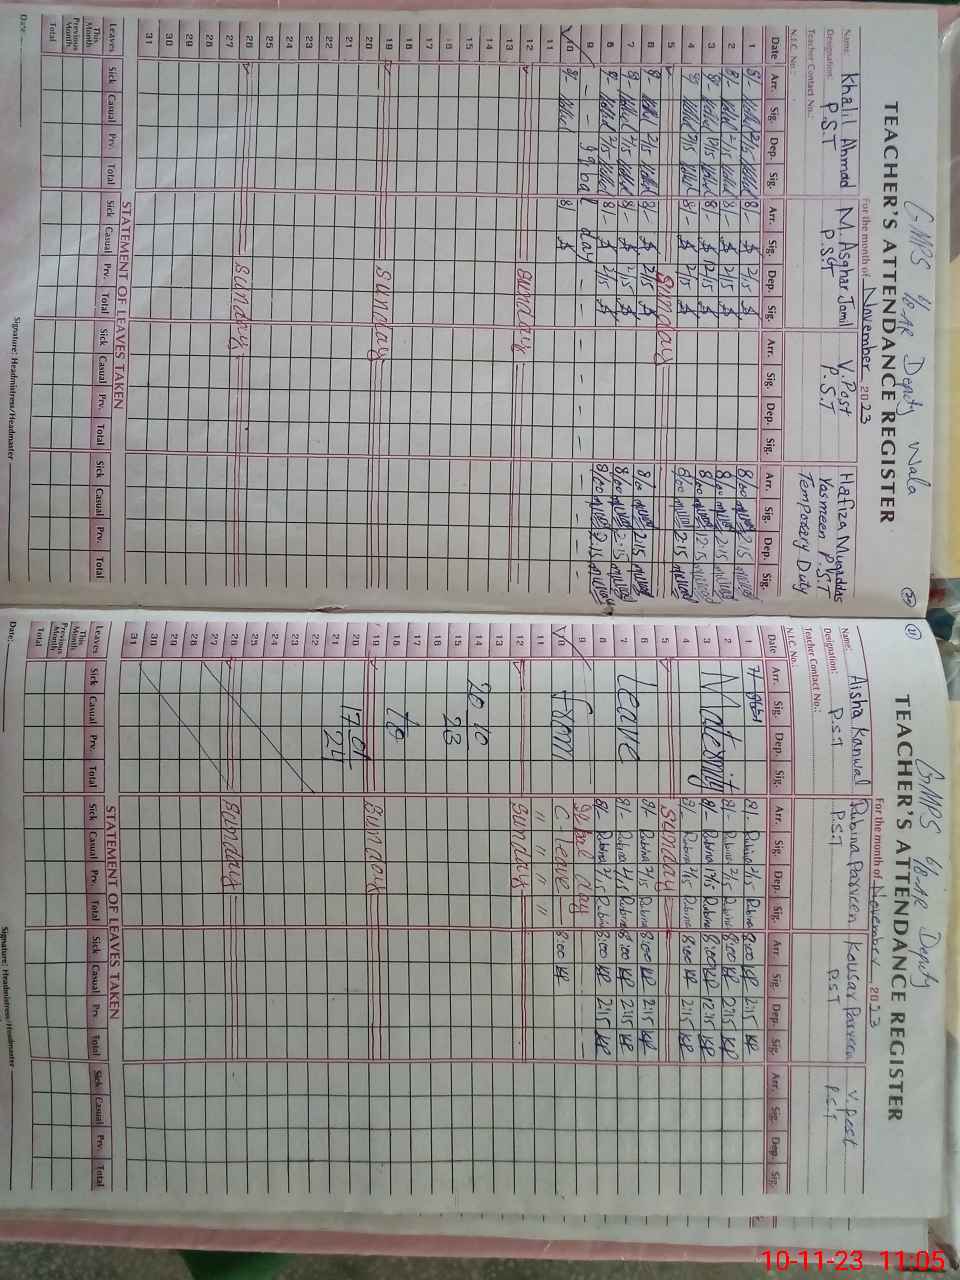 GMPS 4/10-AR Deputy Wala
TEACHER'S ATTENDANCE REGISTER
For the month of November 2023
Name: Khalil Ahmad M. Asghar Jamil V. Post Hafiza Muqaddas
Designation: P.S.T P.S.T P.S.T Yasmeen P.S.T
Teacher Contact No.: Temporary Duty
N.I.C. No.:
Date Arr. Sig. Dep. Sig. Arr. Sig. Dep. Sig. Arr. Sig. Dep. Sig. Arr. Sig. Dep. Sig.
1 8/- 2/15 8/- 2/15 8/00 2:15
2 8/- 2/15 8/- 2/15 8/00 2:15
3 8/- 12/15 8/- 12/15 8/00 12:15
4 8/- 2/15 8/- 2/15 8/00 2:15
5 Sunday
6 8/- 2/15 8/- 2/15 8/00 2:15
7 8/- 2/15 8/- 2/15 8/00 2:15
8 8/- 2/15 8/- 2/15 8/00 2:15
9 - - Iqbal day - - - - - - - - - -
10 8/- 8/
11
12 Sunday
13
14
15
16
17
18
19 Sunday
20
21
22
23
24
25
26 Sunday
27
28
29
30
31
STATEMENT OF LEAVES TAKEN
Leaves Sick Casual Prv. Total Sick Casual Prv. Total Sick Casual Prv. Total Sick Casual Prv. Total
This Month
Previous Month:
Total
Date: Signature: Headmistress/Headmaster
GMPS 4/10-AR Deputy
TEACHER'S ATTENDANCE REGISTER
For the month of November 2023
Name: Aisha Kanwal Rubina Parveen Kousar Parveen V. Post
Designation: P.S.T P.S.T P.S.T P.S.T
Teacher Contact No.:
N.I.C. No.:
Date Arr. Sig. Dep. Sig. Arr. Sig. Dep. Sig. Arr. Sig. Dep. Sig. Arr. Sig. Dep. Sig.
1 8/- Rubina 2/15 Rubina 8:00 KP 2:15 KP
2 8/- Rubina 2/15 Rubina 8:00 KP 2:15 KP
3 Maternity 8/- Rubina 12/15 Rubina 8:00 KP 12:15 KP
4 8/- Rubina 2/15 Rubina 8:00 KP 2:15 KP
5 Sunday
6 8/- Rubina 2/15 Rubina 8:00 KP 2:15 KP
7 Leave 8/- Rubina 2/15 Rubina 8:00 KP 2:15 KP
8 8/- Rubina 2/15 Rubina 8:00 KP 2:15 KP
9 Iqbal day - - - -
10 From C-leave 8:00 KP
11 " " " "
12 Sunday
13
14 20 10
15 23
16
17
18 to
19 Sunday
20 17 01
21 24
22
23
24
25
26 Sunday
27
28
29
30
31
STATEMENT OF LEAVES TAKEN
Leaves Sick Casual Prv. Total Sick Casual Prv. Total Sick Casual Prv. Total Sick Casual Prv. Total
This Month
Previous Month:
Total
Date: Signature: Headmistress/Headmaster
10-11-23 11:05